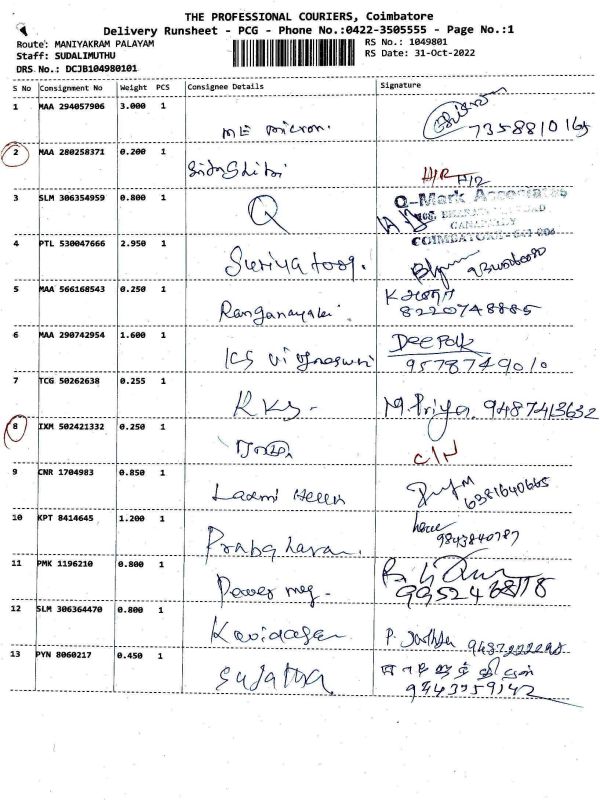 THE PROFESSIONAL COURIERS, Coimbatore
Delivery Runsheet - PCG - Phone No.:0422-3505555 - Page No.:1
Route: MANIYAKRAM PALAYAM RS No.: 1049801
Staff: SUDALIMUTHU RS Date: 31-Oct-2022
DRS No.: DCJB104980101
S No Consignment No Weight PCS Consignee Details Signature
1 MAA 294057906 3.000 1
ME micron. 7358810165
2 MAA 280258371 0.200 1
H/R H/R
3 SLM 306354959 0.800 1 Q-Mark Associates
Q
COIMBATORE - 641 006
4 PTL 530047666 2.950 1
Suriya
5 MAA 566168543 0.250 1
Ranganayaki 8220748885
6 MAA 290742954 1.600 1 Deepak
ICS Vigneswari 9578774901
7 TCG 50262638 0.255 1
RKS - M.Priya. 9487413632
8 IXM 502421332 0.250 1
C/N
9 CNR 1704983 0.850 1
Laxmi Heera 6381640665
10 KPT 8414645 1.200 1
Prabaharan. 9843840787
11 PMK 1196210 0.800 1
Power meg-
12 SLM 306364470 0.800 1
Kavidasan P.
13 PYN 8060217 0.450 1
Sujatha 9443759142